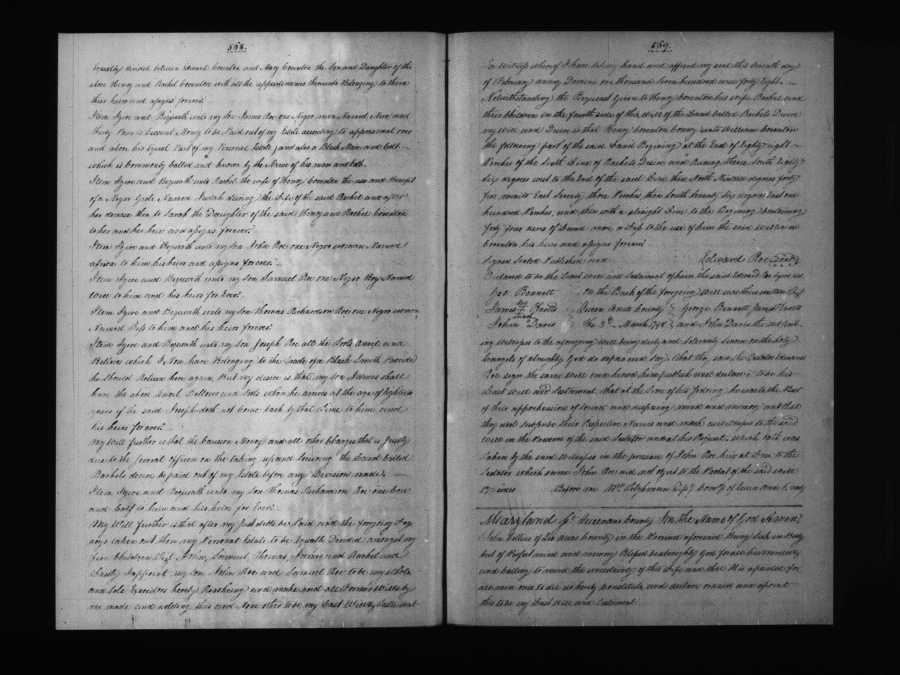 558.
Equally devided between Edward Comton and Mary Comton the Son and Daughter of the
above Henry and Rachel Comton with all the appurtenances thereunto Belonging to them
their heirs and assigns forever
Item I give and Bequeath unto my Son James Roe one Negro man Named and
Thirty Pounds Current Money to be Paid out of my Estate according to appraisment over
and above his Equal Part of my Personal Estate, and also a Black Mare and Colt
which is Commonly Called and known by the Name of his mare and Colt
Item I give and Bequeath unto Rachel the wife of Henry Comton the use and Benefit
of a Negro Girle Named during the Life of the said Rachel and after
her decease then to Sarah the Daughter of the said Henry and Rachel Comton
to her and her heirs and assigns forever
Item I give and Bequeath unto my Son John Roe one Negro woman Named
to him his heirs and assigns forever
Item I give and Bequeath unto my Son Samuel Roe one Negro Boy Named
Will to him and his heirs for Ever
Item I give and Bequeath unto my Son Thomas Richardson Roe one Negro woman
Named to him and his heirs forever
Item I give and Bequeath unto my Son Joseph Roe all the Tools Anvil and
Bellows which I Now have Belonging to the trade of a Black Smith Provided
he Should Return here again, But my desire is that my Son James shall
have the above Anvil Bellows and Tools when he arives at the age of Eighteen
years if the said Joseph doth not Come back by that Time to him and
his heirs forever
My Will further is that the Caution Money and all other Charges that is justly
due to the several officers on the taking up and Securing the Land Called
Rachels desire be paid out of my Estate before any Division made
Item I give and Bequeath unto my Son Thomas Richardson Roe one Cow
and Calf to him and his heirs for Ever
My Will further is that after my just debts be Paid and the foregoing Leg-
acys taken out then my Personal Estate to be Equally Devided amongst my
five Children Viz. John, Samuel Thomas James and Rachel and
Lastly I appoint my son John Roe and Samuel Roe to be my whole
and Sole Executors hereby Revoking and make void all Former Wills by
me made and holding this and None other to be my Last Will & Testament
559.
In Witness whereof I have set my hand and affixed my seal this seventh day
of February annoq Domini one thousand seven hundred and forty Eight
Notwithstanding the Bequest given to Henry Comton his wife Rachel and
their Children in the fourth side of this Will of the Land Called Rachels Desire
my Will and Desire is that Henry Comton Convey unto William Comton
the following part of the said Land Begining at the End of Eighty Eight
Perches of the Line of Rachels Desire and Runing thence South Eighty
Six degrees west to the End of the said Line then North Nineteen degrees forty
five minits East Seventy three Perches, then South Seventy Six degrees East one
hundred Perches, and then with a straight Line to the Begining Containing
forty four acres of Land more or Less to the use of him the said William
Comton his heirs and assigns forever
Signed Sealed Published and Edward Roe Seal
Declared to be the Last Will and Testament of him the said Edward Roe
Geo Bennett On the Back of the foregoing Will was thus written Viz
James Queen Anns County George Bennett James
John Davis The 3d March 1748 and John Davis the subscrib-
ing witnesses to the foregoing Will being duly and solemnly sworn on the holy
Evangels of almighty God do depose and say That they saw the Testator Edward
Roe sign the same Will and heard him publish and declare it to be his
Last Will and Testament that at the Time of his so doing he was to the Best
of their apprehension of sound and disposing mind and memory and that
they did subscribe their Respective Names and mark as witnesses to the said
Will in the Presence of the said Testator and at his Request, which oath was
Taken by the said witnesses in the presence of John Roe heir at Law to the
Testator which same John Roe did not object to the Probat of the said Will
Before me Wm. Tilghman Depty Comry of Queen Anns County
Maryland ss. Queen anns County In the Name of God Amen I
John Collins of Queen anns County in the Province aforesaid Being Sick in Body
but of Perfect mind and memory Blessed be almighty God for all his mercies
and Calling to mind the uncertainty of this Life and that it is apointed for
all men once to die do hereby Constitute and declare ordain and apoint
this to be my Last Will and Testament